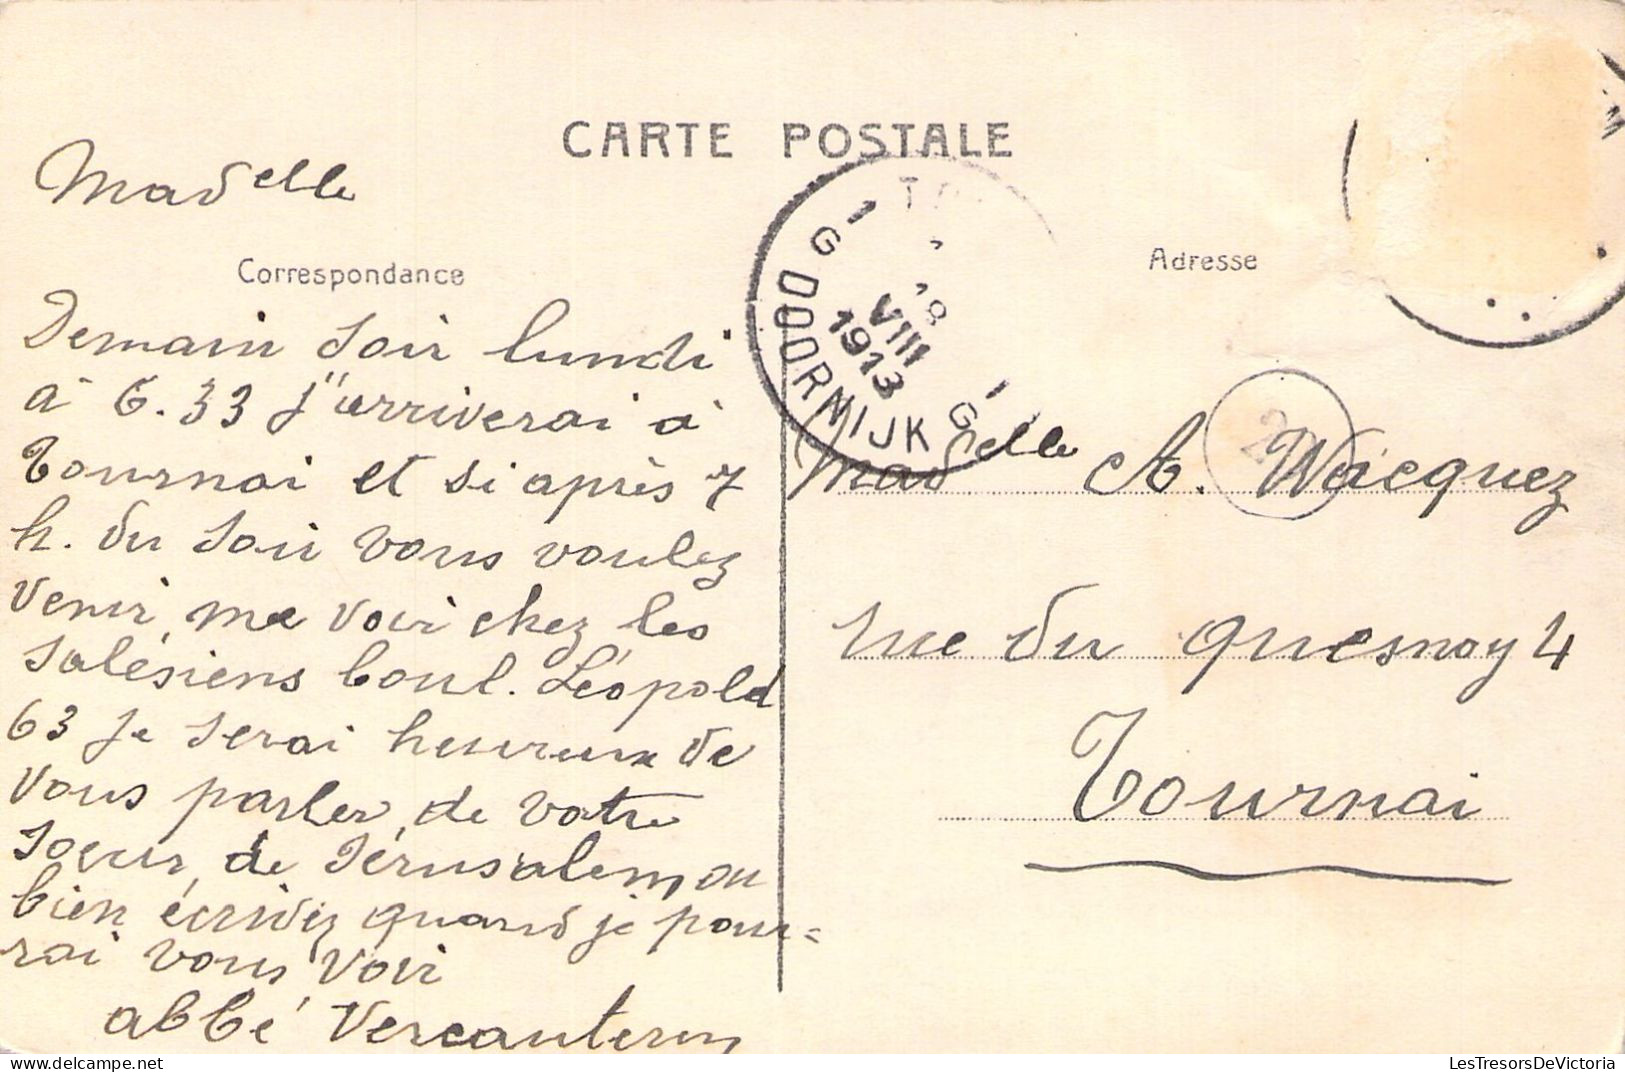 CARTE POSTALE
Madelle
Correspondance
Demain soir lundi
à 6.33 j'arriverai à
Tournai et si après 7
h. du soir vous voulez
venir me voir chez les
Salésiens boul. Léopold
63 je serai heureux de
vous parler de votre
soeur de Jérusalem ou
bien écrivez quand je pour=
rai vous voir
abbé Vercauteren
1 G DOORNIJK G 1
VIII
1913
Adresse
Madelle A. Wacquez
rue du quesnoy 4
Tournai
2
LesTresorsDeVictoria